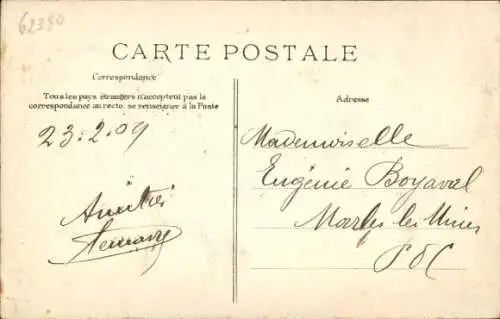 62390
CARTE POSTALE
Correspondance
Tous les pays étrangers n'acceptent pas la
correspondance au recto, se renseigner à la Poste
Adresse
23.2.09
Mademoiselle
Eugénie Boyaval
Marles les Mines
PdC
Amitiés